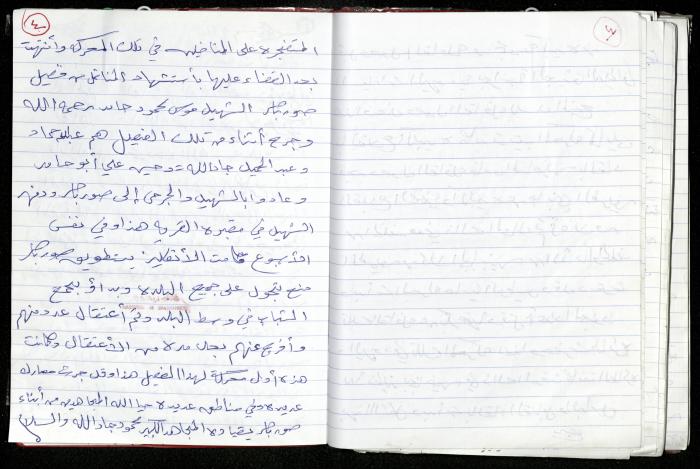 ٤
المتفجرة على المناضلين في تلك المعركة وأنتهت
بعد القضاء عليها بأستشهاد المناضل من فصيل
صور باهر الشهيد موسى محمود حامد رحمه الله
وجرح أثناء من تلك الفصيل هم عبدالله حماد
وعبد الحميد جادالله وحسين علي أبو حامد
وعادوا بالشهيد والجرحى إلى صور باهر ودفن
الشهيد في مقبرة القرية هذا وفي نفس
الأسبوع قامت الأنقليز بتطويق صور باهر
منع تجول على جميع البلدة وبدأو بجمع
الشباب في وسط البلد وتم أعتقال عدد منهم
وأفرج عنهم بعد مدة من الأعتقال وكانت
هذه أول معركة لهذا الفصيل هذا وقد جرت معارك
عديدة وفي مناطق عديدة حيا الله المجاهدين من أبناء
صور باهر بقيادة المجاهد الكبير محمود جادالله والسلام
٣